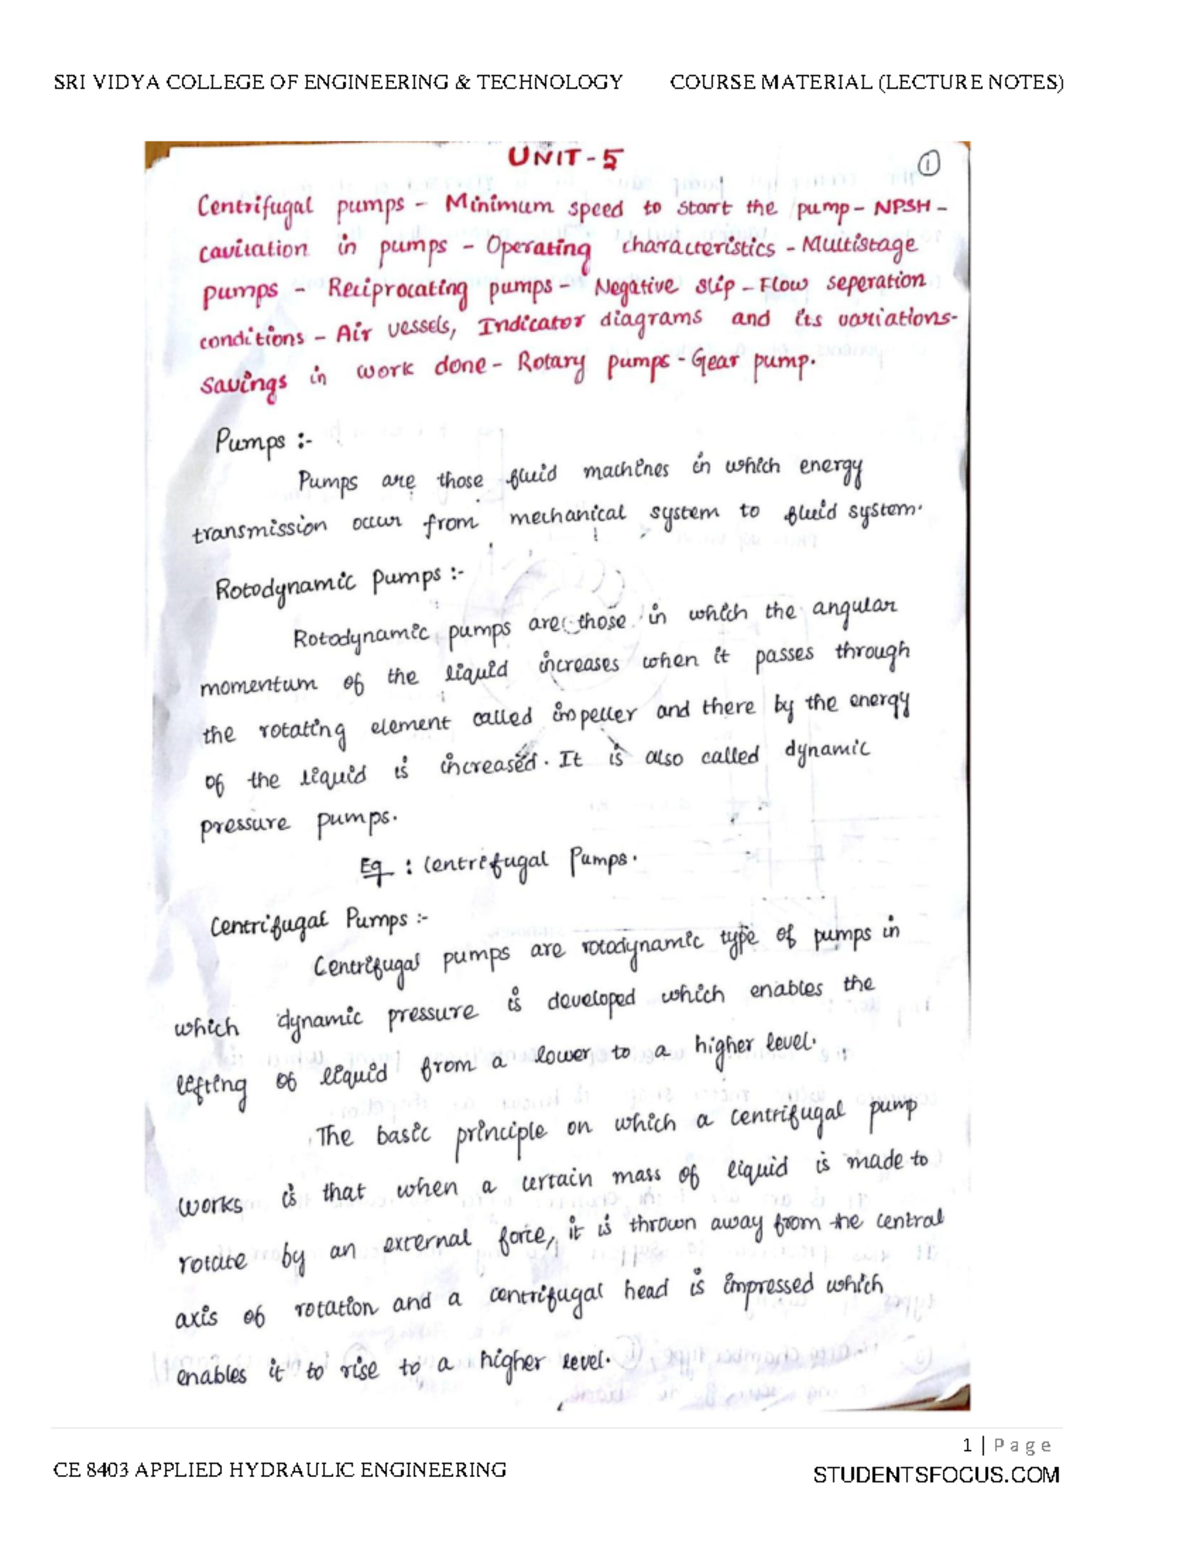 SRI VIDYA COLLEGE OF ENGINEERING & TECHNOLOGY COURSE MATERIAL (LECTURE NOTES)
UNIT-5
1
Centrifugal pumps - Minimum speed to start the pump - NPSH -
cavitation in pumps - Operating characteristics - Multistage
pumps - Reciprocating pumps - Negative slip - Flow seperation
conditions - Air vessels, Indicator diagrams and its variations-
savings in work done - Rotary pumps - Gear pump.
Pumps :-
Pumps are those fluid machines in which energy
transmission occur from mechanical system to fluid system.
Rotodynamic pumps :-
Rotodynamic pumps are those in which the angular
momentum of the liquid increases when it passes through
the rotating element called impeller and there by the energy
of the liquid is increased. It is also called dynamic
pressure pumps.
Eg : Centrifugal Pumps.
Centrifugal Pumps :-
Centrifugal pumps are rotodynamic type of pumps in
which dynamic pressure is developed which enables the
lifting of liquid from a lower to a higher level.
The basic principle on which a centrifugal pump
works is that when a certain mass of liquid is made to
rotate by an external force, it is thrown away from the central
axis of rotation and a centrifugal head is impressed which
enables it to rise to a higher level.
1 | Page
CE 8403 APPLIED HYDRAULIC ENGINEERING
STUDENTSFOCUS.COM